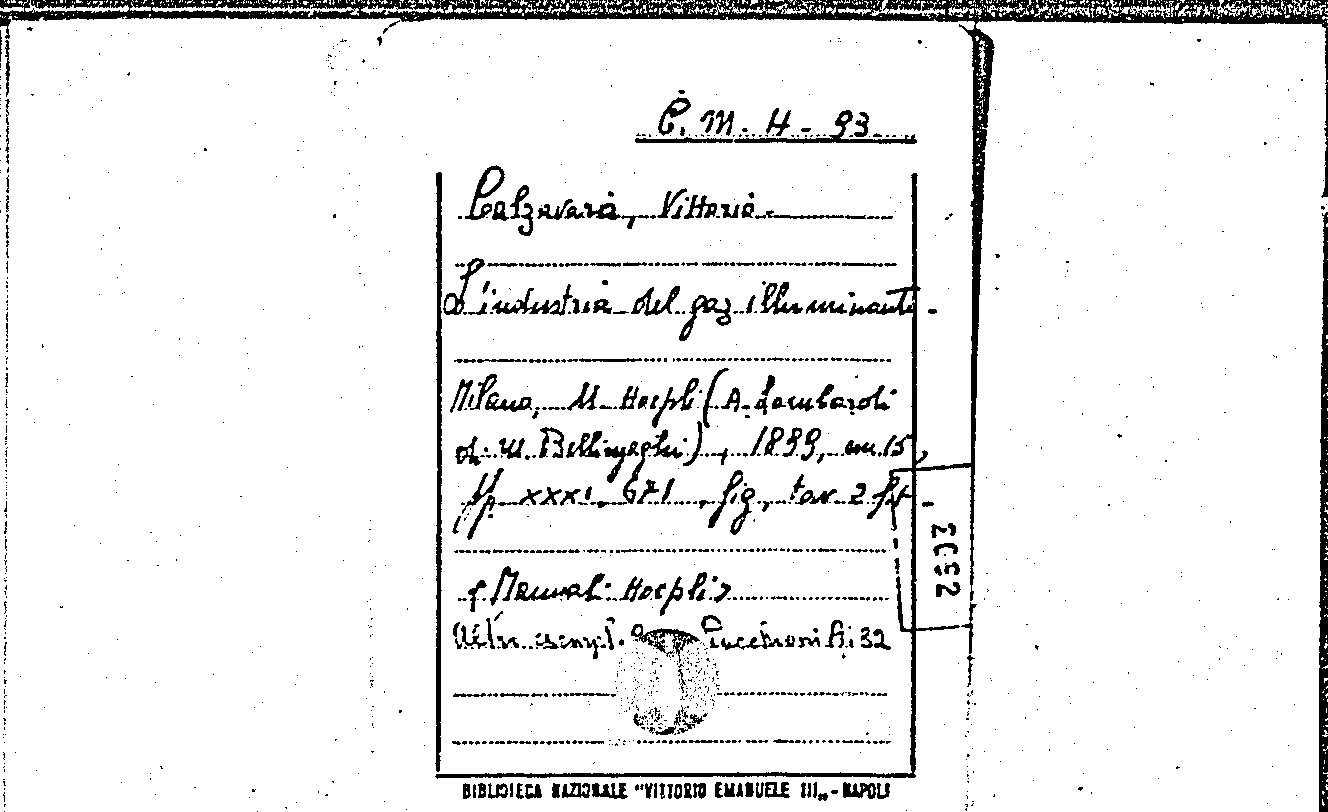 C. M. H - 93
Calzavara, Vittorio.
L'industria del gaz illuminante.
Milano, U. Hoepli (A. Lombardi
di M. Bellinzaghi), 1899, in 15,
pp. XXXI, 671, fig, tav 2 fot.
Manuali Hoepli
Altr. esempl. Lucchesi A. 32
2692
BIBLIOTECA NAZIONALE "VITTORIO EMANUELE III„ - NAPOLI